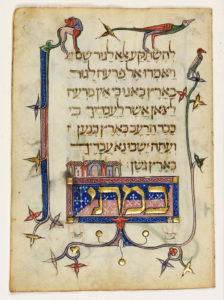 להשתקע אלא לגור שם שנ
ויאמרו אל פרעה לגור
בארץ באנו כי אין מרעה
לצאן אשר לעבדיך כי
כבד הרעב בארץ כנען
ועתה ישבו נא עבדיך
בארץ גשן
במתי